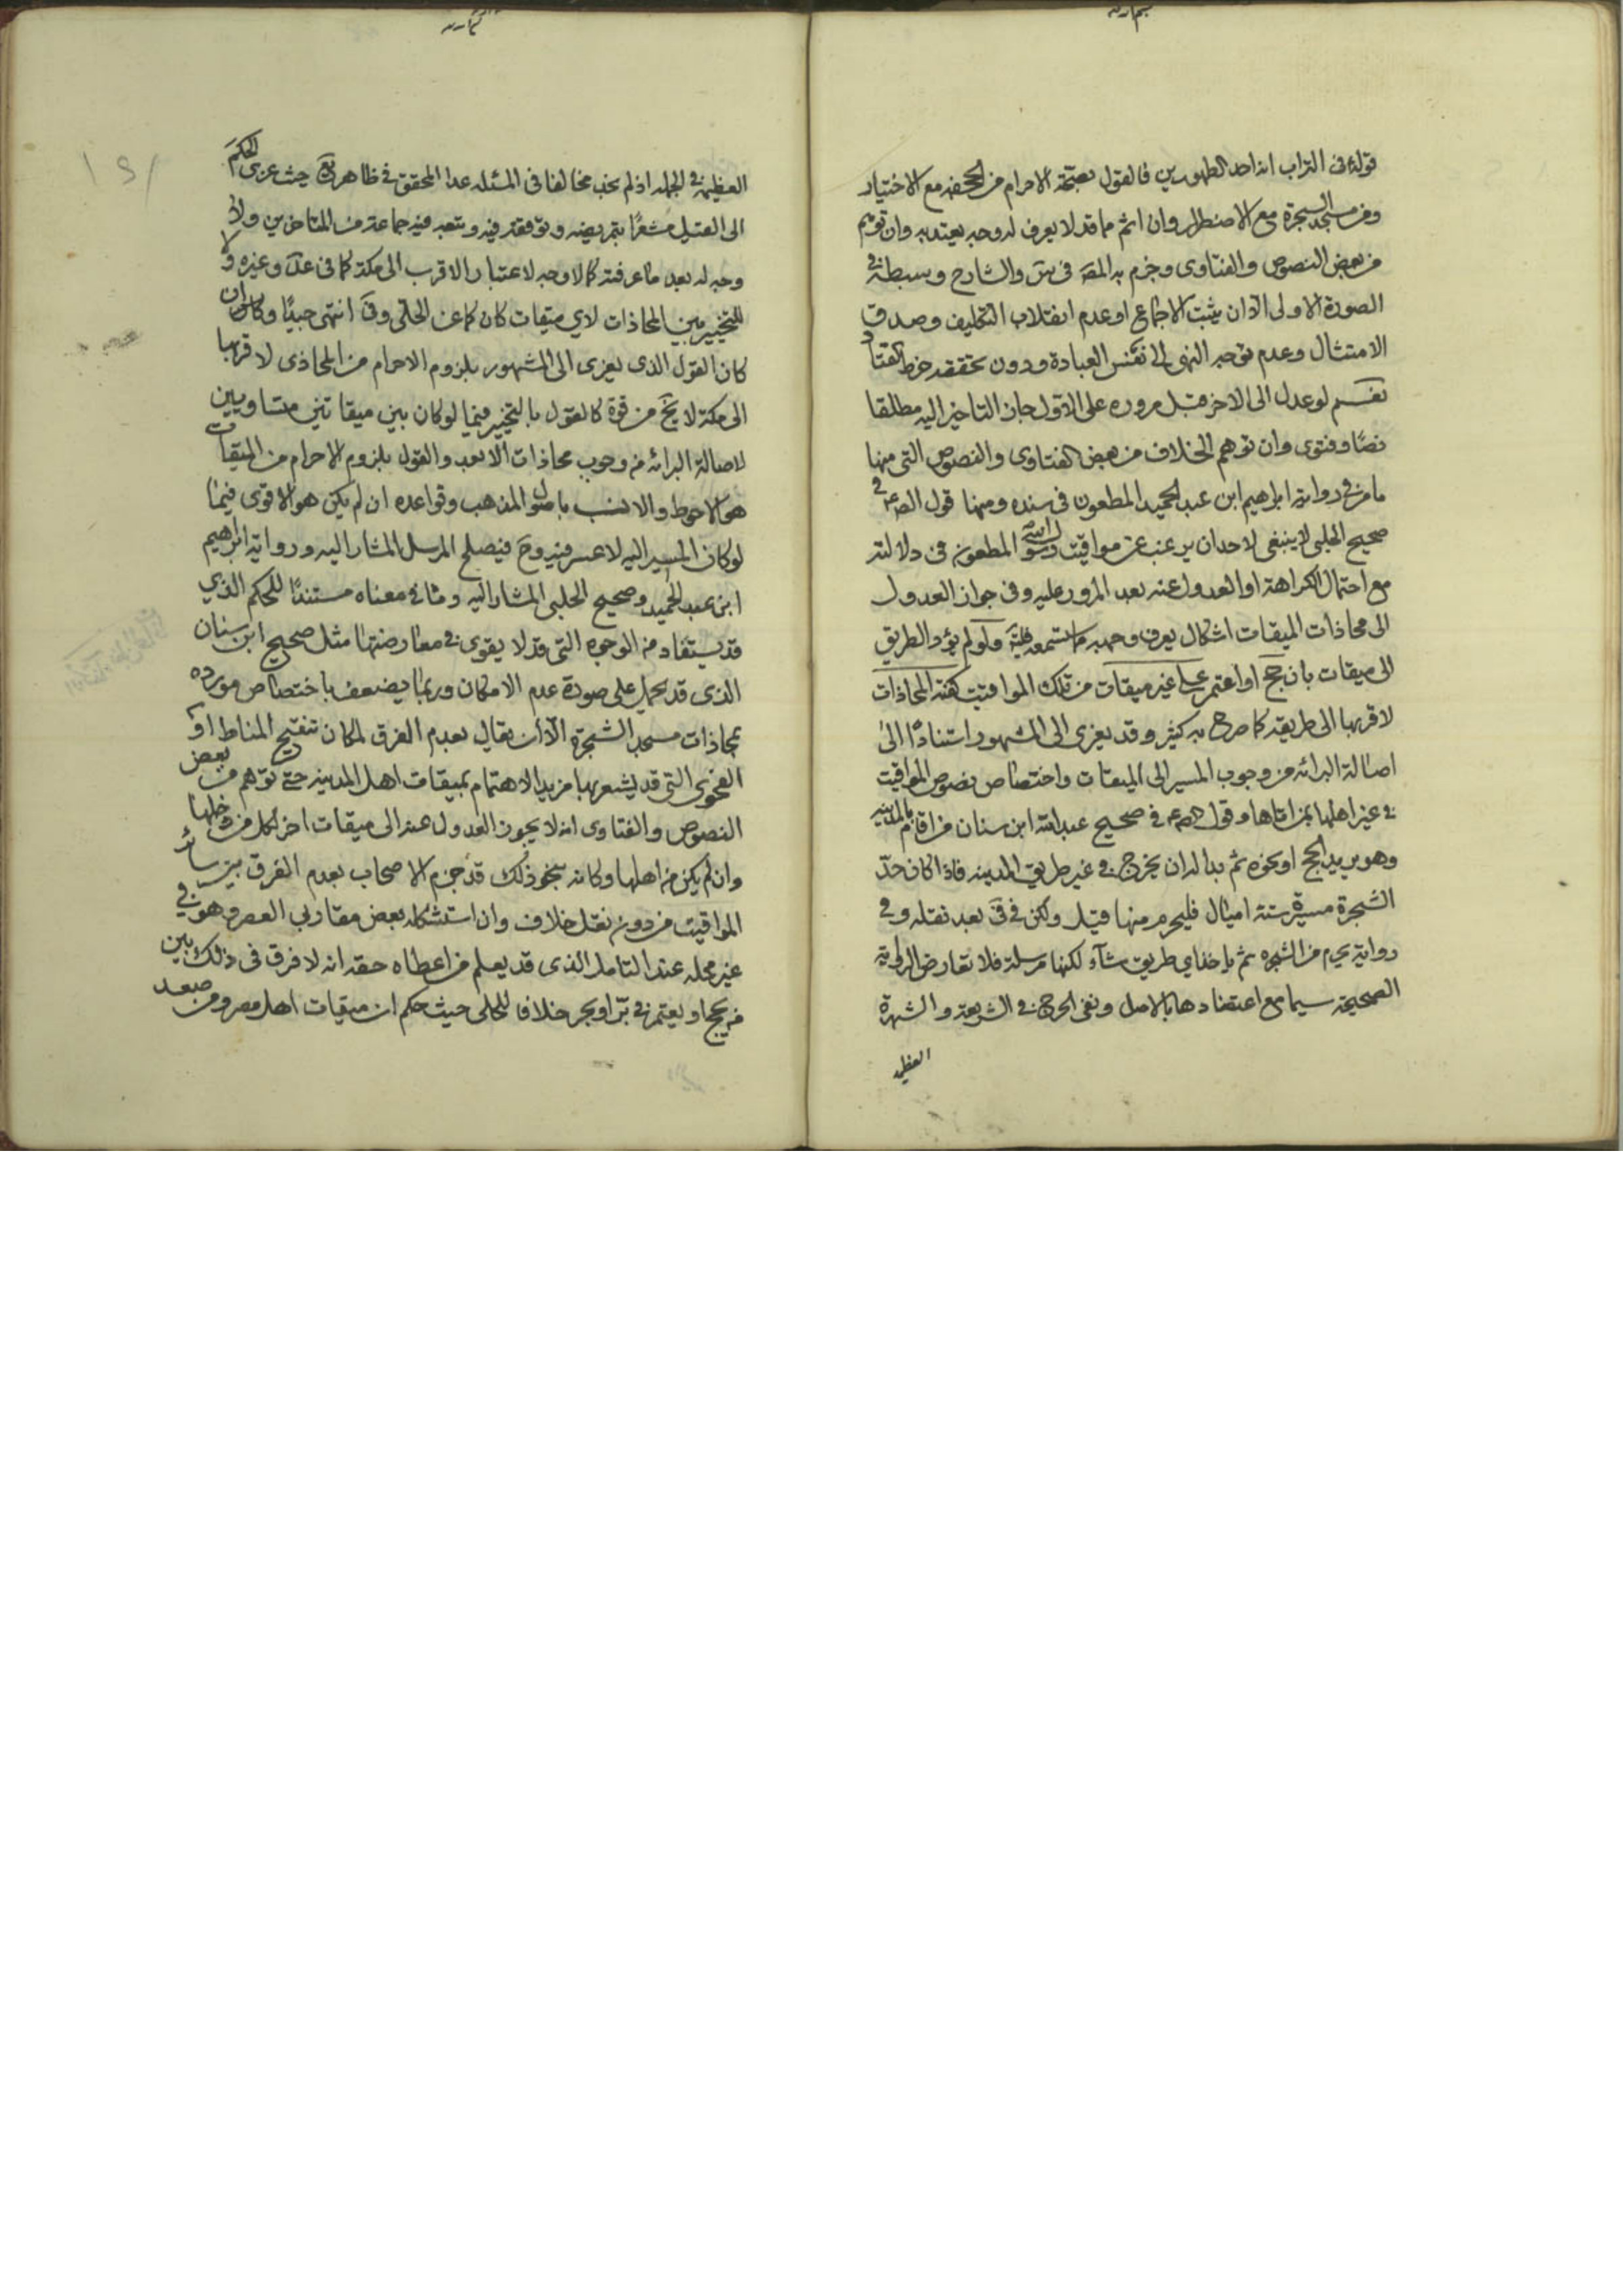 قوله في التراب انه احد الطهورين فالقول بصحة الاحرام من الجحفة مع الاختيار
ومن مسجد الشجرة مع الاضطرار وان اثم مما قد لا يعرف له وجه يعتد به وان توهم
من بعض النصوص والفتاوى وجزم به المص في س والشارح وسبطه في
الصورة الاولى الا ان يثبت الاجماع او عدم انقلاب التكليف وصدق
الامتثال وعدم توجه النهي الى نفس العبادة ودون تحققه خرط القتاد
نعم لو عدل الى الاخر قبل مروره على الاول جاز التاخير اليه مطلقا
نصا وفتوى وان توهم الخلاف من بعض الفتاوى والنصوص التي منها
ما مر في رواية ابراهيم ابن عبد الحميد المطعون في سنده ومنها قول الصم في
صحيح الحلبي لا ينبغي لاحد ان يرغب عن مواقيت رسول الله المطعون في دلالته
مع احتمال الكراهة او العدول عنه بعد المرور عليه وفي جواز العدول
الى محاذات الميقات اشكال يعرف وجهه ما ستسمعه ولو لم يؤد الطريق
الى ميقات بان حج او اعتمر على غير ميقات من تلك المواقيت كفته المحاذات
لاقربها الى طريقه كما صرح به كثير وقد يعزى الى المشهور استنادا الى
اصالة البرائه من وجوب المسير الى الميقات واختصاص نصوص المواقيت
في غير اهلها بمن اتاها وقول الصم في صحيح عبد الله ابن سنان من اقام بالمدينه
وهو يريد الحج او نحوه ثم بدا له ان يخرج في غير طريق المدينه فاذا كان حذاء
الشجرة مسيرة ستة اميال فليحرم منها قيل ولكن في في بعد نقله وفي
رواية يحرم من الشجره ثم ياخذ اي طريق شاء لكنها مرسلة فلا تعارض الرواية
الصحيحه سيما مع اعتضادها بالاصل ونفي الحرج في الشريعة والشهرة
العظيمه
العظيمة في الجملة اذ لم نجد مخالفا في المسئله عدا المحقق في ظاهر يع حيث عزى الحكم
الى القيل مشعرا بتمريضه وتوقفه فيه وتبعه فيه جماعة من المتاخرين ولا
وجه له بعد ما عرفته كما لا وجه لاعتبار الاقرب الى مكة كما في عد وغيره ولا
للتخيير بين المحاذات لاي ميقات كان كما عن الحلي وف انتهى جيدا وكان
كان القول الذي يعزى الى المشهور بلزوم الاحرام من المحاذي لاقربها
الى مكة لا يخ من قوة كالقول بالتخيير فيما لو كان بين ميقاتين متساويين
لاصالة البرائه من وجوب محاذات الابعد والقول بلزوم الاحرام من الميقات
هو الاحوط والانسب باصول المذهب وقواعده ان لم يكن هو الاقوى فيما
لو كان المسير اليه لا عسر فيه وح فيصلح المرسل المشار اليه ورواية ابراهيم
ابن عبد الحميد وصحيح الحلبي المشار اليه وما في معناه مستندا للحكم الذي
قد يستفاد من الوجوه التي قد لا يقوى في معارضتها مثل صحيح ابن سنان
الذي قد يحمل على صورة عدم الامكان وربما يضعف باختصاص مورده
بمحاذات مسجد الشجرة الا ان يقال بعدم الفرق لمكان تنقيح المناط او
الفحوى التي قد يشعر بها مزيد الاهتمام بميقات اهل المدينه حتى توهم من بعض
النصوص والفتاوى انه لا يجوز العدول عنه الى ميقات اخر لكل من دخلها
وان لم يكن من اهلها وكانه بنحو ذلك قد جزم الاصحاب بعدم الفرق بين سائر
المواقيت من دون نقل خلاف وان استشكله بعض مقاربي العصر وهو في
غير محله عند التامل الذي قد يعلم من اعطاه حقه انه لا فرق في ذلك بين
من يحج او يعتمر في بر او بحر خلافا للحلي حيث حكم ان ميقات اهل مصر ومن صعد